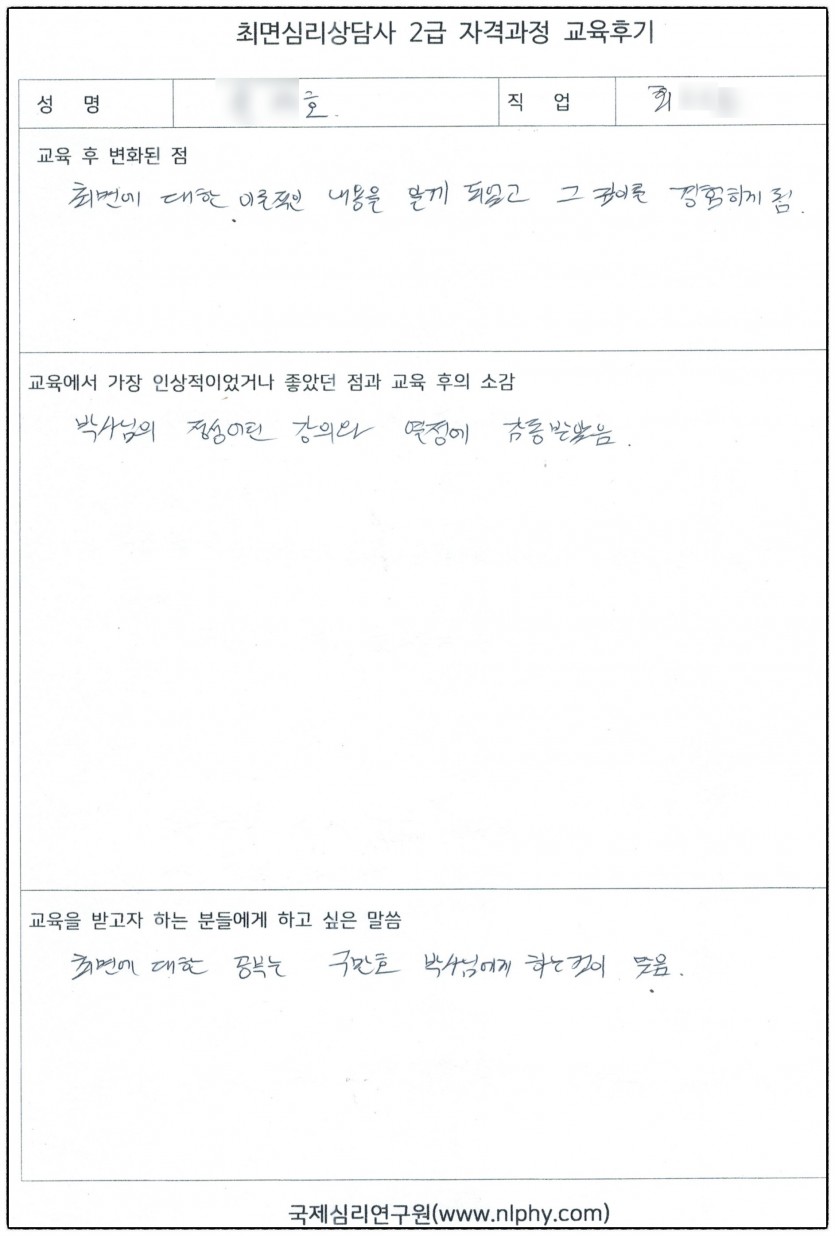 최면심리상담사 2급 자격과정 교육후기
성 명 호. 직 업 회
교육 후 변화된 점
최면에 대한 이론적인 내용을 알게 되었고 그 깊이를 경험하게 됨.
교육에서 가장 인상적이었거나 좋았던 점과 교육 후의 소감
박사님의 정성어린 강의와 열정에 감동받았음.
교육을 받고자 하는 분들에게 하고 싶은 말씀
최면에 대한 공부는 구만호 박사님에게 하는것이 맞음.
국제심리연구원(www.nlphy.com)